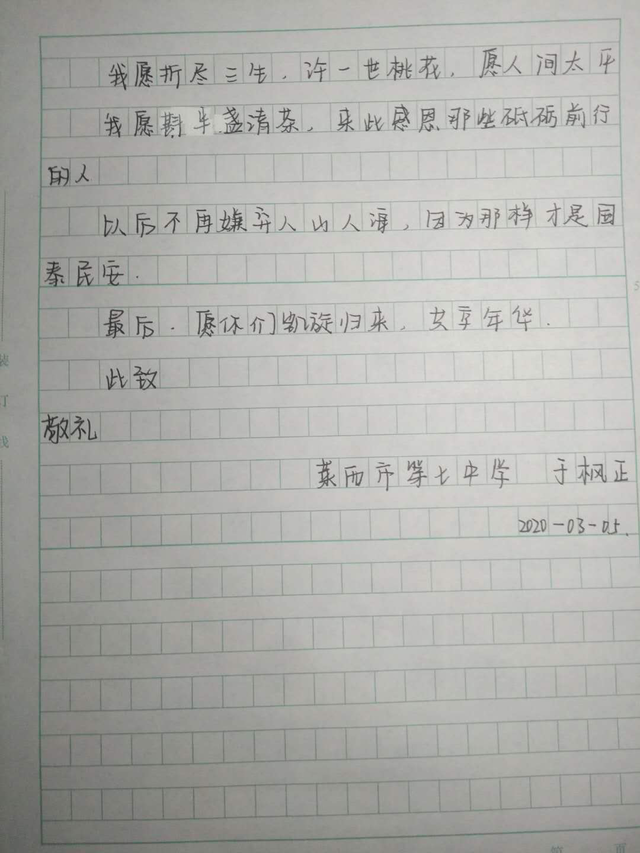 我愿折尽三生，许一世桃花，愿人间太平
我愿斟半盏清茶，来此感恩那些砥砺前行
的人
以后不再嫌弃人山人海，因为那样才是国
泰民安.
最后.愿你们凯旋归来，安享年华.
此致
敬礼
莱西市第七中学 于枫正
2020-03-05.
第 页